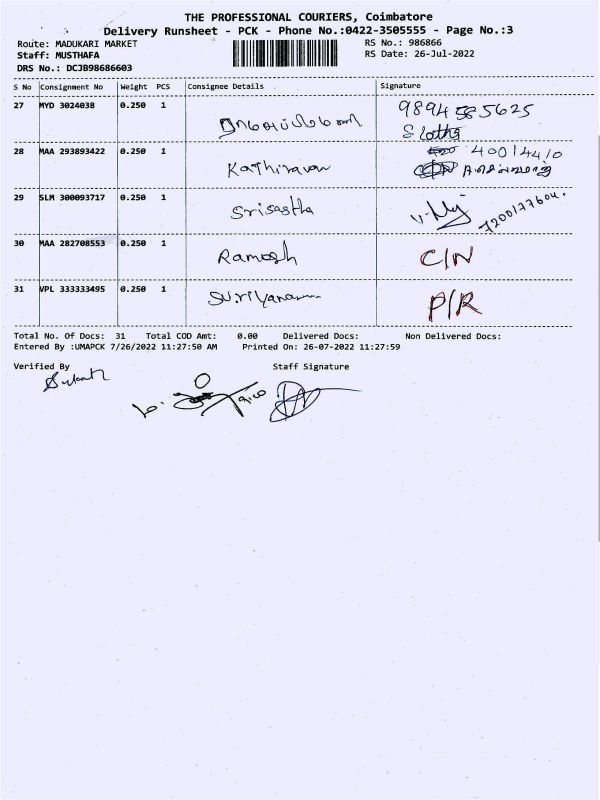 THE PROFESSIONAL COURIERS, Coimbatore
Delivery Runsheet - PCK - Phone No.:0422-3505555 - Page No.:3
Route: MADUKARI MARKET RS No.: 986866
Staff: MUSTHAFA RS Date: 26-Jul-2022
DRS No.: DCJB98686603
S No Consignment No Weight PCS Consignee Details Signature
27 MYD 3024038 0.250 1 9894585625
28 MAA 293893422 0.250 1 Kathiravan 40014410
29 SLM 300093717 0.250 1 Srisastha 7200177604.
30 MAA 282708553 0.250 1 Ramesh C/N
31 VPL 333333495 0.250 1 P/R
Total No. Of Docs: 31 Total COD Amt: 0.00 Delivered Docs: Non Delivered Docs:
Entered By :UMAPCK 7/26/2022 11:27:50 AM Printed On: 26-07-2022 11:27:59
Verified By Staff Signature